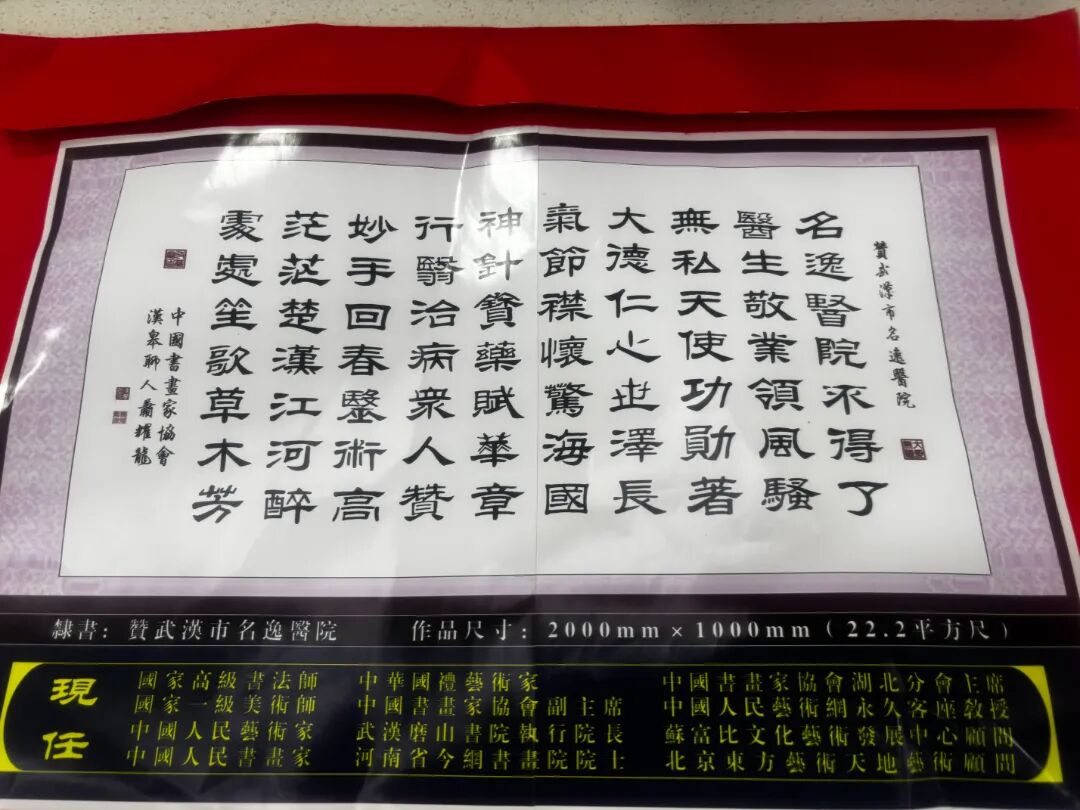 贊武漢市名逸醫院
名逸醫院不得了
醫生敬業領風騷
無私天使功勛著
大德仁心世澤長
氣節襟懷驚海國
神針寶藥賦華章
行醫治病衆人贊
妙手回春毉術高
茫茫楚漢江河醉
處處笙歌草木芳
中國書畫家協會
漢皋聊人蕭耀龍
隸書：贊武漢市名逸醫院 作品尺寸：2000mm×1000mm（22.2平方尺）
現任
國家高級書法師 中華國禮藝術家 中國書畫家協會湖北分會主席
國家一級美術師 中國書畫家協會副主席 中國人民藝術網永久客座教授
中國人民藝術家 武漢磨山書院執行院長 蘇富比文化藝術發展中心顧問
中國人民書畫家 河南省今網書畫院院士 北京東方藝術天地藝術顧問